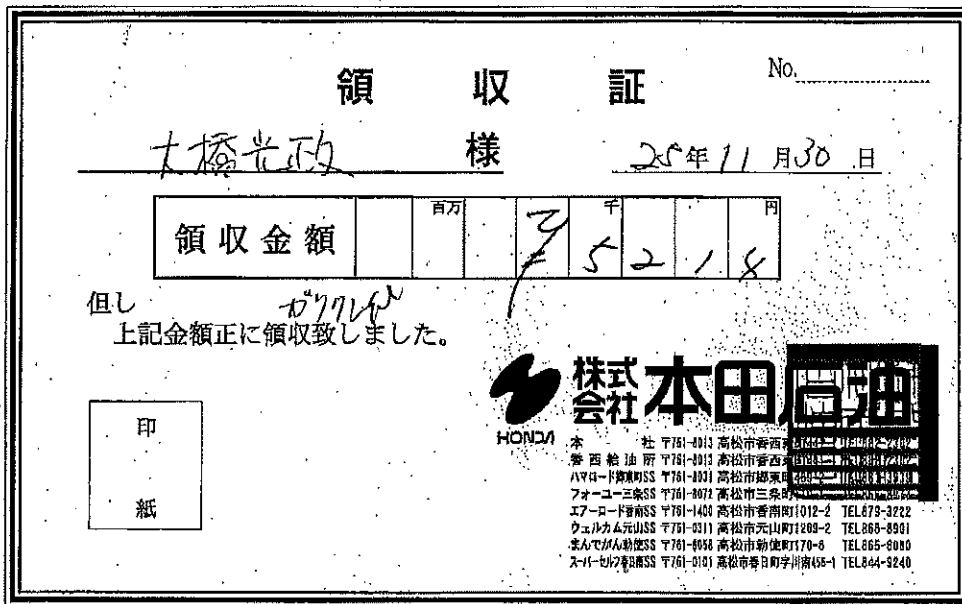 No.
領収証
大橋光政 様
25年11月30日
領収金額 百万 千 円
¥5218
但し
上記金額正に領収致しました。
印紙
HONDA
株式会社 本田石油
本社 〒761-8013 高松市香西
香西給油所 〒761-8013 高松市香西
ハマロード郷東町SS 〒761-8031 高松市郷東町
フォーユー三条SS 〒761-8072 高松市三条町
エアーロード香南SS 〒761-1400 高松市香南町1012-2 TEL879-3222
ウェルカム元山SS 〒761-0311 高松市元山町1209-2 TEL868-8901
まんでがん勅使SS 〒761-8058 高松市勅使町170-6 TEL865-8080
スーパーセルフ春日南SS 〒761-0101 高松市春日町字川南458-1 TEL844-9240